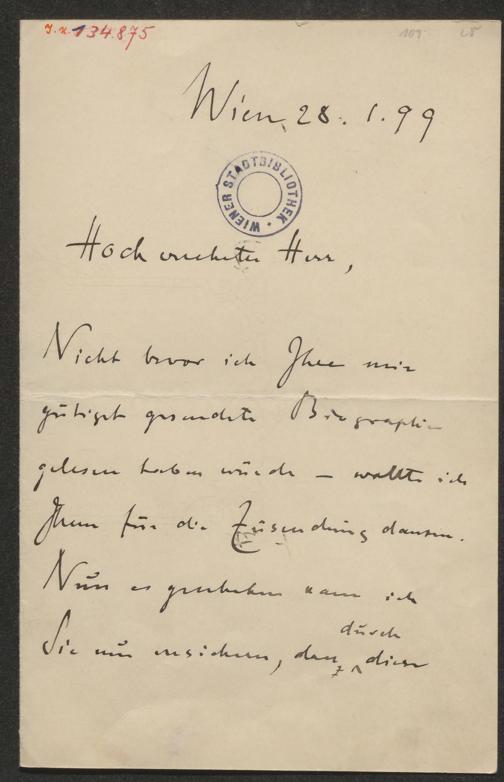 J.N. 134.875
Wien, 28. 1. 99
WIENER STADTBIBLIOTHEK
Hochverehrter Herr,
Nicht bevor ich Ihre mir
gütigst gesendete Biographie
gelesen haben würde – wollte ich
Ihnen für die Zusendung danken.
Nun es geschehen kann ich
durch
Sie nur versichern, dass diese